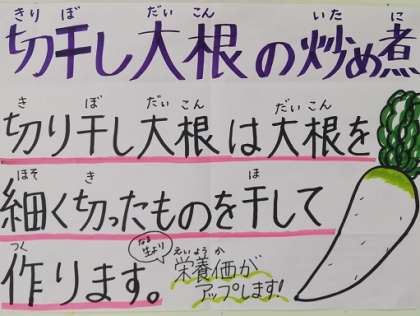 きりぼ だいこん いた に
切干し大根の炒め煮
き ぼ だいこん だいこん
切り干し大根は大根を
ほそ き ほ
細く切ったものを干して
つく
作ります。
なま
生より
えいようか
栄養価が
アップします!